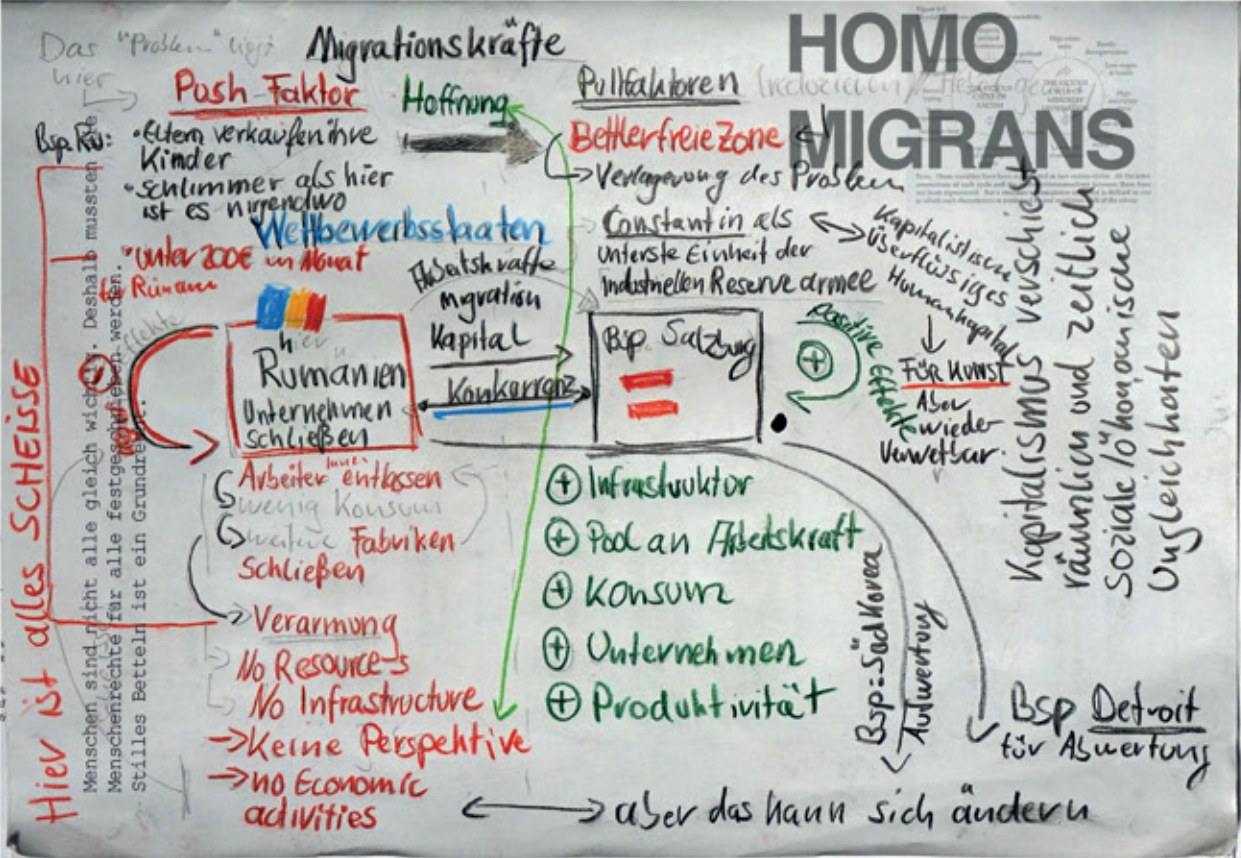 HOMO
MIGRANS
Das "Problem" liegt
hier
Migrationskräfte
Push Faktor
Hoffnung
Pullfaktoren
Bsp. Ru:
• Eltern verkaufen ihre
Kinder
• schlimmer als hier
ist es nirgendwo
• unter 200€ im Monat
Bettlerfreie Zone
Verlagerung des Problem
Wettbewerbsstaaten
Constantin als
unterste Einheit der
industriellen Reservearmee
Kapitalistisch
Überflüssiges
Humankapital
FÜR KUNST
Aber
wieder
Verwertbar.
Arbeitskräfte
migration
Kapital
Konkurrenz
hier
Rumänien
Unternehmen
schließen
Bsp. Salzburg
positive Effekte
+
Arbeiter innen entlassen
wenig Konsum
weitere Fabriken
Schließen
Verarmung
No Resources
No Infrastructure
Keine Perspektive
no Economic
activities
+ Infrastruktur
+ Pool an Arbeitskraft
+ Konsum
+ Unternehmen
+ Produktivität
Bsp: Südkorea
Aufwertung
Bsp Detroit
für Abwertung
aber das kann sich ändern
Kapitalismus verschiebt
räumlich und zeitlich
Soziale/ökonomische
Ungleichheiten
Hier ist alles SCHEISSE
Menschen sind nicht alle gleich wichtig. Deshalb mussten die
Menschenrechte für alle festgeschrieben werden.
Stilles Betteln ist ein Grundrecht.